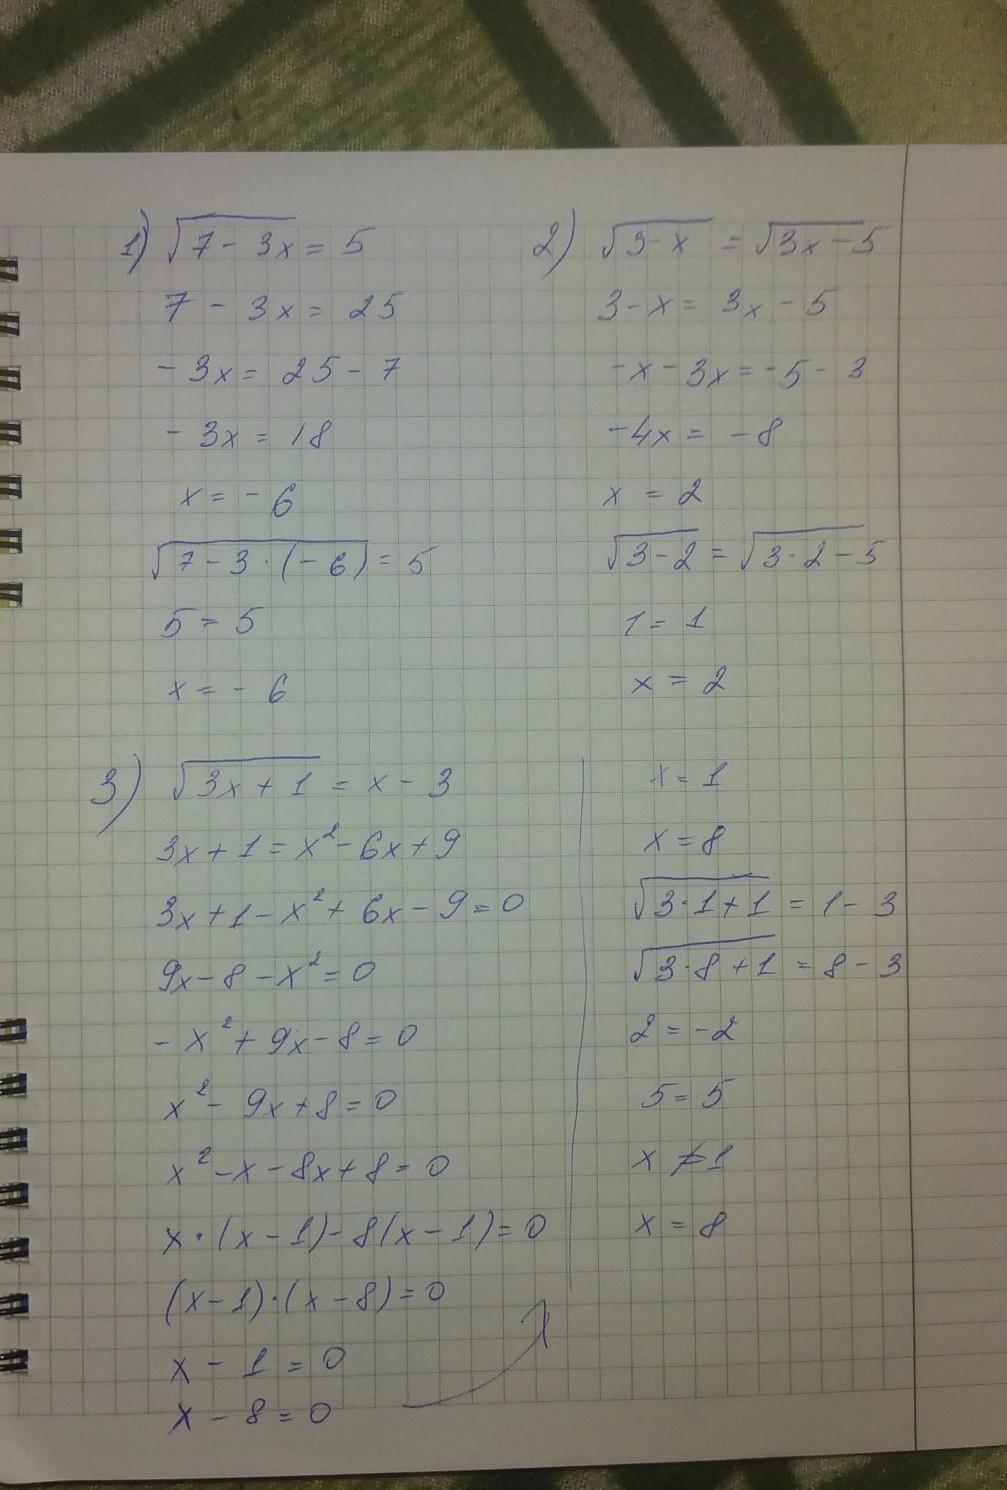 1) √(7 - 3x) = 5
7 - 3x = 25
- 3x = 25 - 7
- 3x = 18
x = - 6
√(7 - 3 · (- 6)) = 5
5 = 5
x = - 6
2) √(3 - x) = √(3x - 5)
3 - x = 3x - 5
-x - 3x = -5 - 3
-4x = -8
x = 2
√(3 - 2) = √(3 · 2 - 5)
1 = 1
x = 2
3) √(3x + 1) = x - 3
3x + 1 = x² - 6x + 9
3x + 1 - x² + 6x - 9 = 0
9x - 8 - x² = 0
- x² + 9x - 8 = 0
x² - 9x + 8 = 0
x² - x - 8x + 8 = 0
x · (x - 1) - 8(x - 1) = 0
(x - 1) · (x - 8) = 0
x - 1 = 0
x - 8 = 0
x = 1
x = 8
√(3 · 1 + 1) = 1 - 3
√(3 · 8 + 1) = 8 - 3
2 = -2
5 = 5
x ≠ 1
x = 8